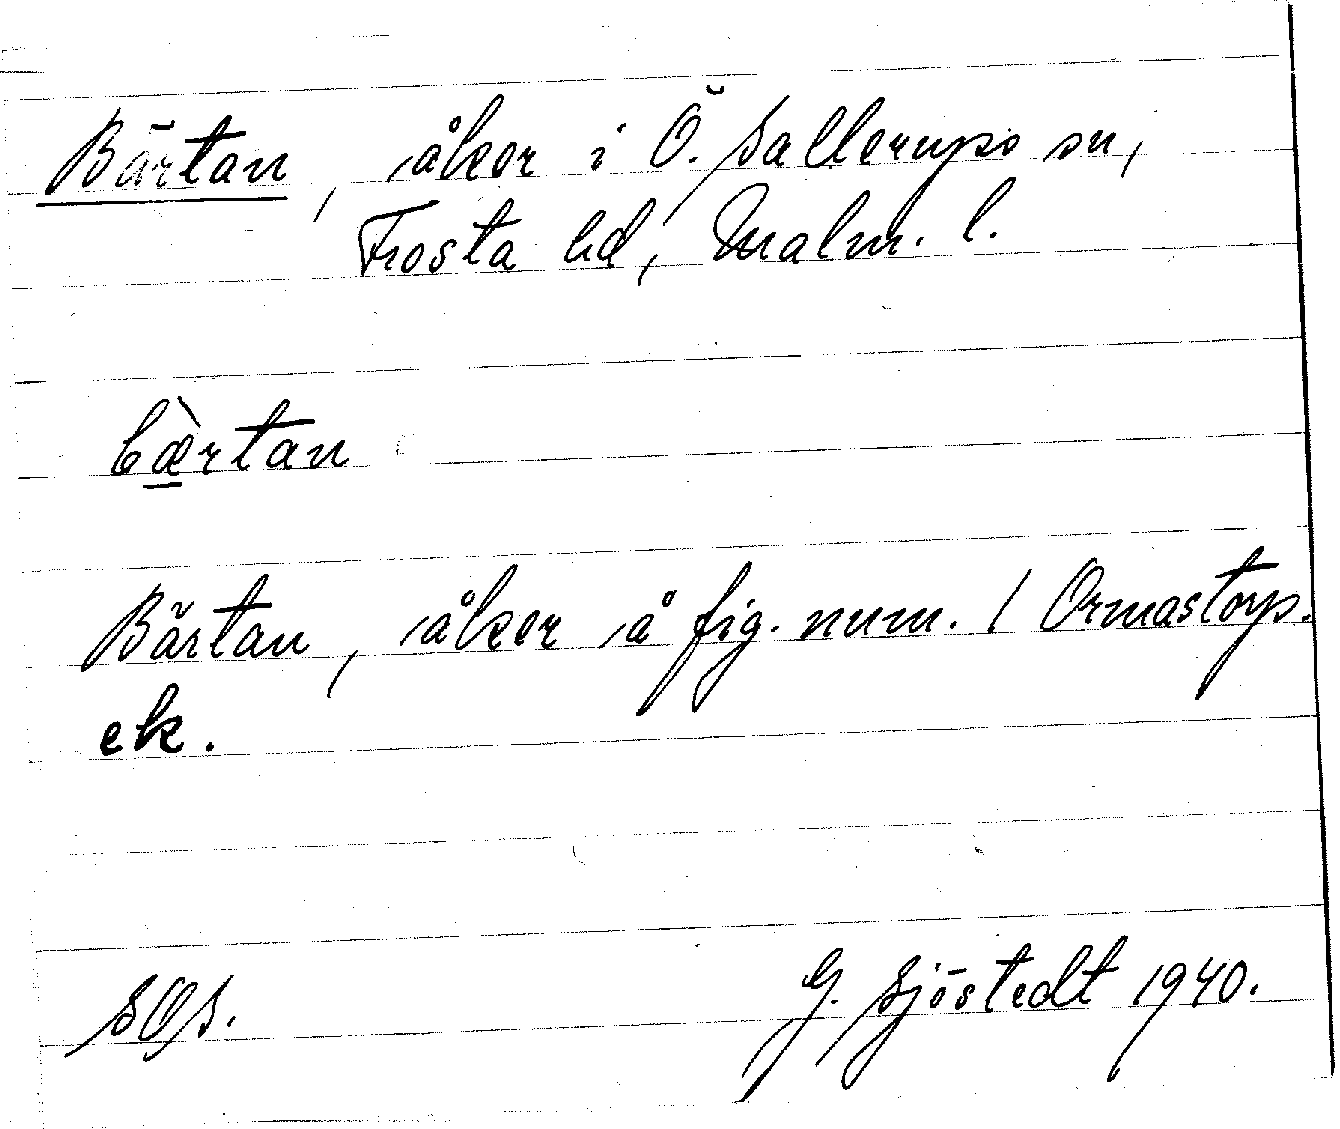 Bärtan, åker i Ö. Sallerups sn,
Frosta hd, Malm. l.
bæ̀rtan
Bärtan, åker å fig. num. 1 Ormastorp.
ek.
SOS.
G. Sjöstedt 1940.